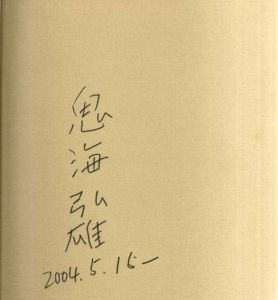 鬼
海
弘
雄
2004.5.15